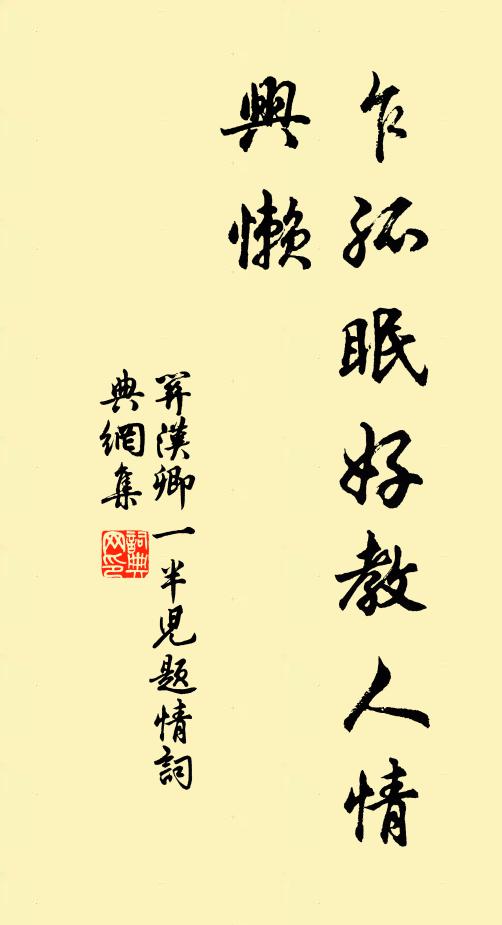 乍孤眠好教人情
興懶
関漢卿一半兒題情詞
典網集
詞典
网印